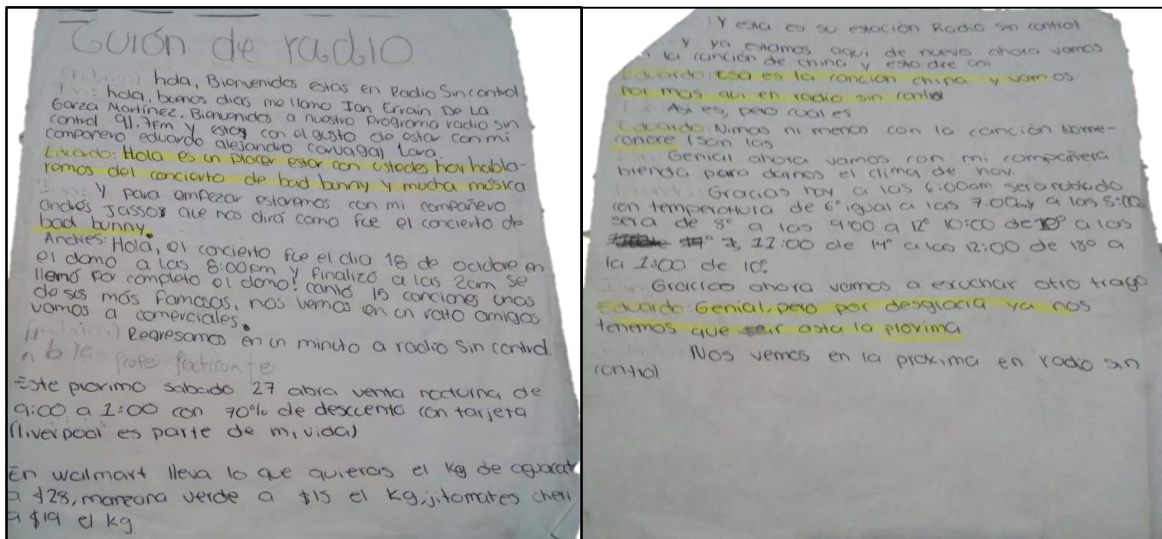 Guión de radio
hola, Bienvenidos estas en Radio Sin control
hola, buenos dias me llamo Ian Ervain De La
Garza Martínez, Bienvenidos a nuestro Programa radio sin
control 91.7fm y estoy con el gusto de estar con mi
compañero eduardo alejandro carvagal Lara.
Eduardo: Hola es un placer estar con ustedes hoy habla-
remos del concierto de bad bunny y mucha música
Y para empezar estaremos con mi compañero
andrés Jassos que nos dirá como fue el concierto de
bad bunny.
Andrés: Hola, el concierto fue el dia 18 de octubre en
el domo a las 8:00pm y finalizó a las 2am se
llenó por completo el domo! cantó 15 canciones unas
de sus más famosas, nos vemos en un rato amigos
vamos a comerciales.
Regresamos en un minuto a radio sin control.
Este proximo sabado 27 abra venta nocturna de
9:00 a 1:00 con 70% de descuento con tarjeta
(liverpool es parte de mi vida)
En walmart lleva lo que quieras el kg de aguacat
a $28, manzana verde a $15 el kg, jitomates cheri
a $19 el kg
Y esta es su estación Radio sin control
Y ya estamos aqui de nuevo ahora vamos
la canción de china y esto dice asi
Eduardo: Esa es la canción china y vamos
por mas aqui en radio sin control
Asi es, pero cual es
Eduardo: Nimas ni menos con la canción
son las
Genial ahora vamos con mi compañera
brenda para darnos el clima de hoy.
Gracias hoy a las 6:00am sera nublado
con temperatura de 6° igual a las 7:00 y a las 8:00
sera de 8° a las 9:00 a 12° 10:00 de a las
11:00 de 14° a las 12:00 de 18° a
la 1:00 de 10°.
Gracias ahora vamos a escuchar otro trago
Eduardo: Genial, pero por desgracia ya nos
tenemos que ir asta la proxima
Nos vemos en la proxima en radio sin
control